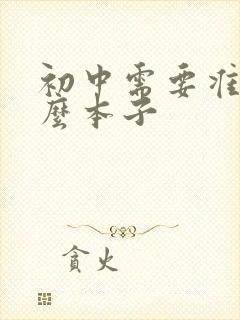 初中需要准
麽本子
貪火